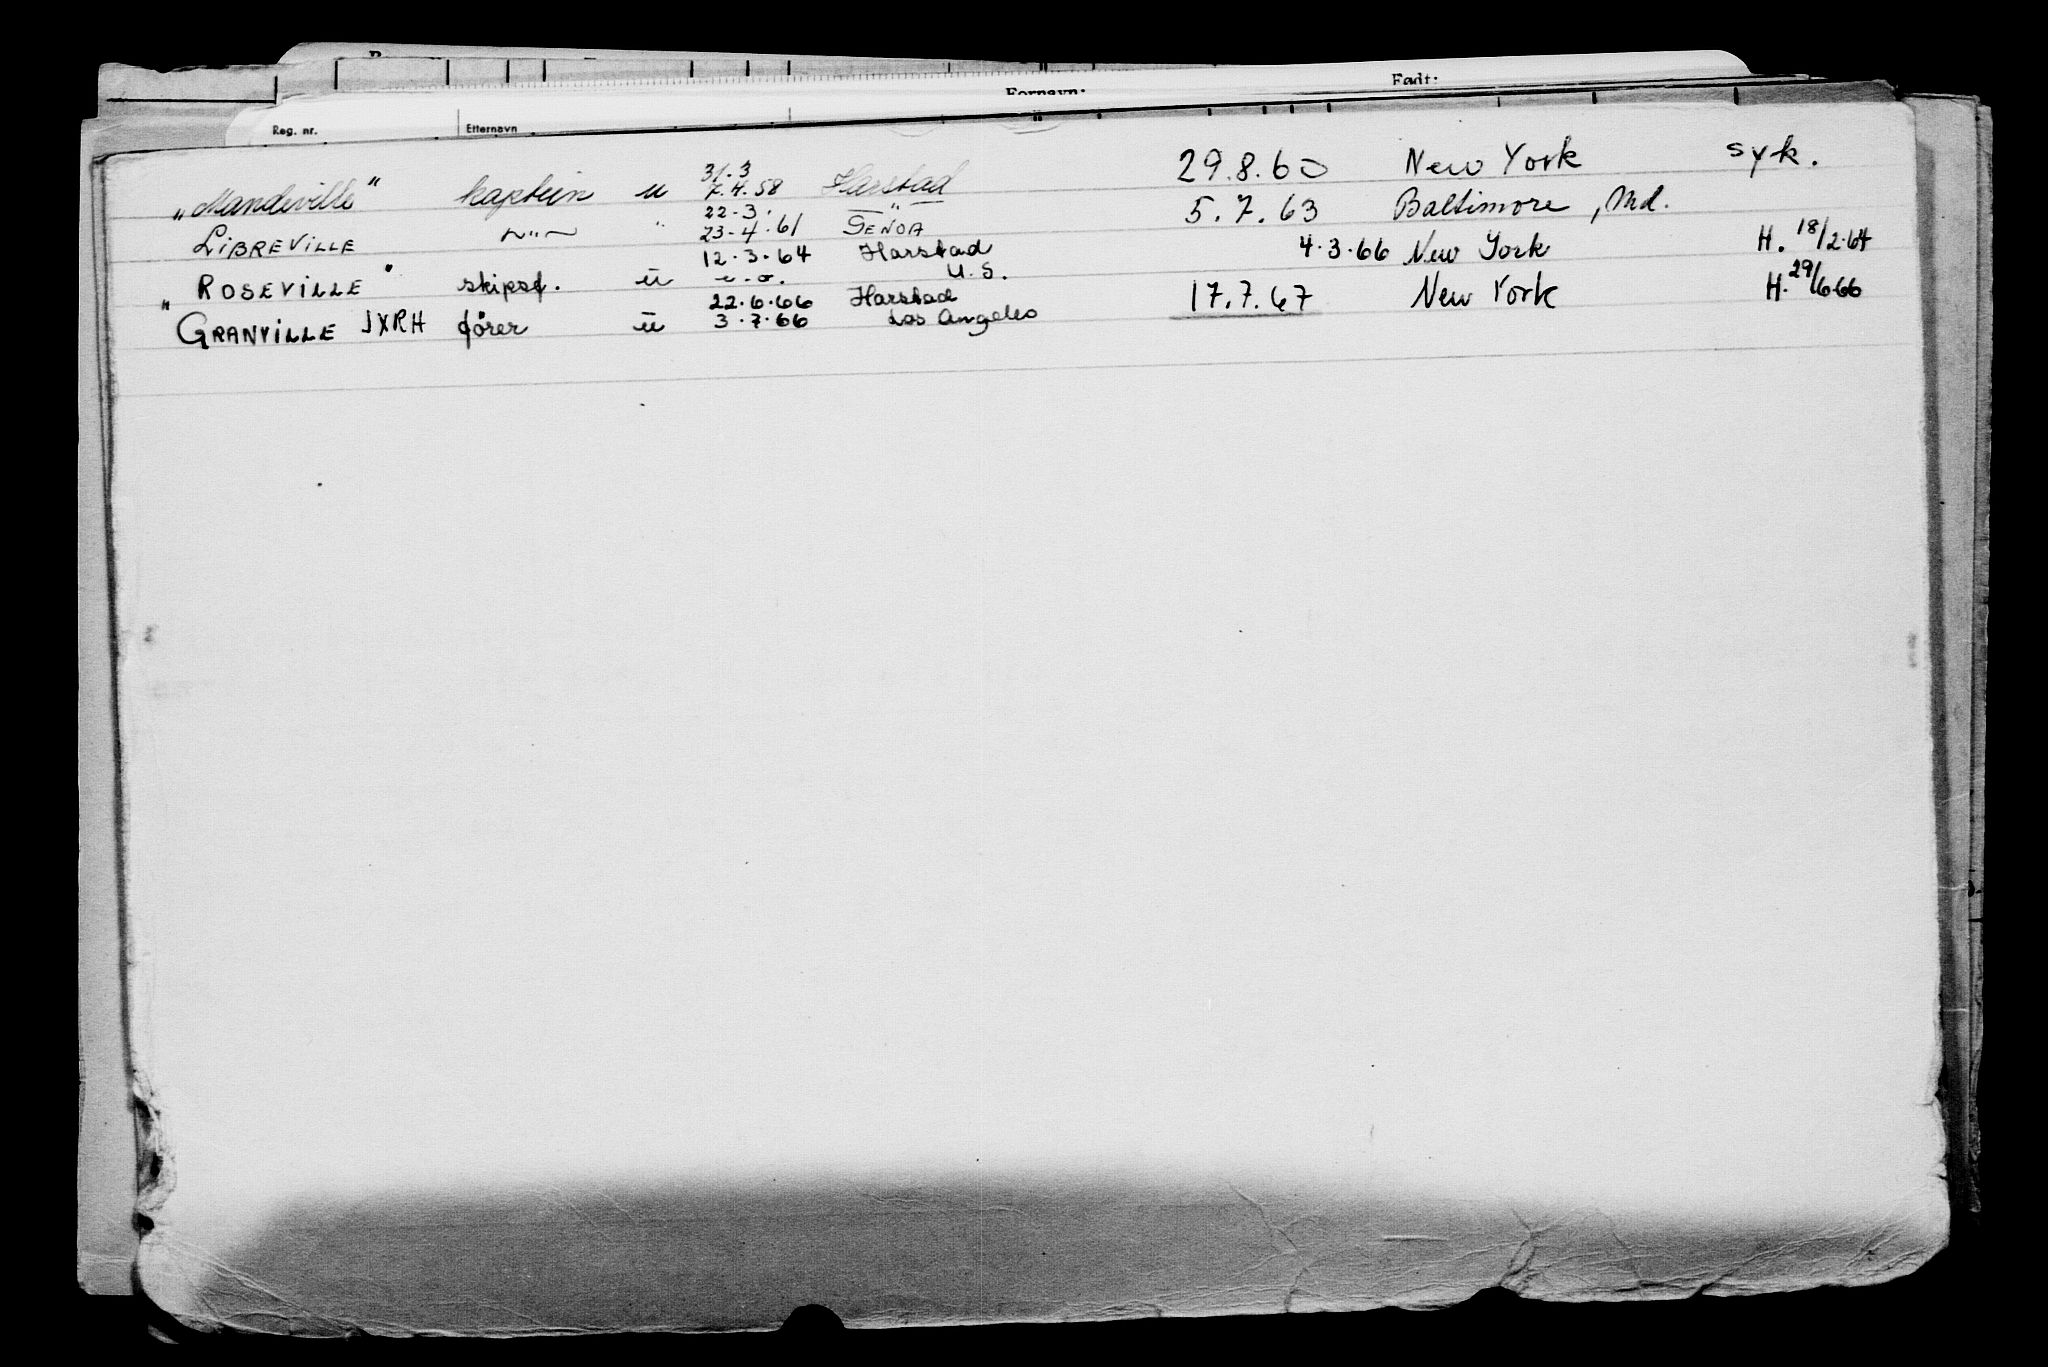 Fornavn: Født:
Reg. nr. Etternavn
„Mandeville" kaptein u 31.3 7.4.58 Harstad 29.8.60 New York syk.
LIBREVILLE —"— " 22-3. 23-4.61 " GENOA 5.7.63 Baltimore, Md.
„ROSEVILLE" skipsf. u 12.3.64 Harstad U.S. 4.3.66 New York H. 18/2.64
GRANVILLE JXRH fører u 22.6.66 3.7.66 Harstad Los Angeles 17.7.67 New York H. 29/6.66